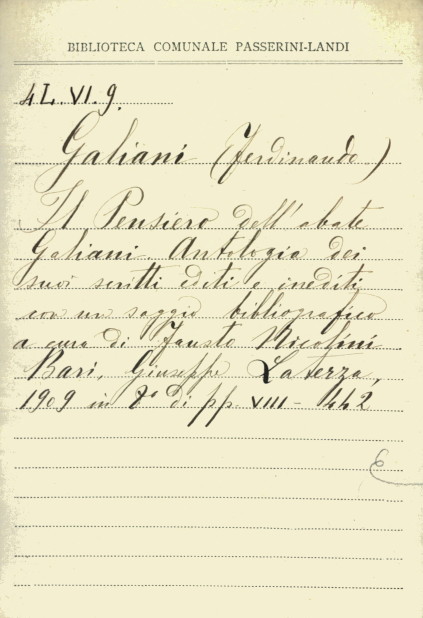 BIBLIOTECA COMUNALE PASSERINI-LANDI
4L.VI.9.
Galiani (Ferdinando)
Il Pensiero dell'abate
Galiani. Antologia dei
suoi scritti editi e inediti
con un saggio bibliografico
a cura di Fausto Nicolini
Bari, Giuseppe Laterza,
1909 in 8° di pp. VIII-442
E